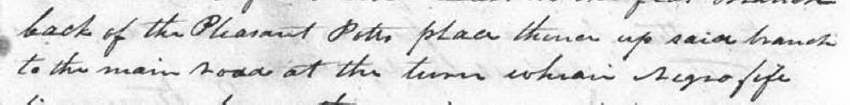 back of the Pleasant Potts place thence up said branch
to the main road at the turn whear Negro fife